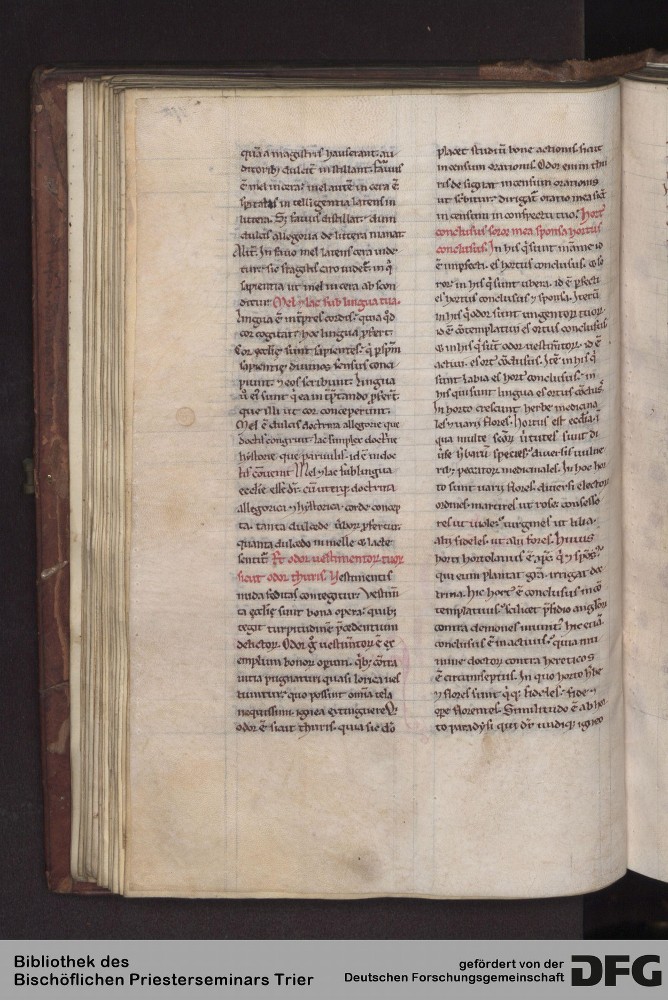 quā a magistris hauserant· au
ditorib; dulcit̄ instillant· fauus
ē mel in cera· mel autē in cera ē
sp̄italis intelligentia latens in
littera. S; fauus distillat· dum
dulcis allegoria de littera manat·
Alit̄· In fauo mel latens cera uide
tur·
sapientia ut mel in cera abscon
ditur· Mel ⁊ lac sub lingua tua.
Lingua ē int̄pres cordis· quia qđ
cor cogitat· hoc lingua ꝓfert·
Cor eccłie sunt sapientes·
sapientię diuinos sensus conci
piunt· ⁊ eos scribunt· Lingua
u̾ ei sunt q̄ ea int̄p̄tando ꝓfer̄t·
que illi ut cor conceperunt·
Mel ē dulcis doctrina allegorie que
doctis congruit· lac simplex doct̾na
hystorie que paruulis· id ē indoc
tis conuenit Mel ⁊ lac sub lingua
ecclie esse dr̄· cū utraq; doctrina
allegorica ⁊ hystorica· corde concep
ta· tanta dulcedĕ úborꝫ ꝓfertur·
quanta dulcedo in melle ⁊ lacte
sentit̄ Et odor uestimentorꝫ tuorꝫ
sicut odor thuris· Uestimentis
nuda feditas contegitur· Vestim̄
ta ecclię sunt bona opera· quib;
tegit turpitudinē p̄cedentium
delictorꝫ· Odor g̊ uestim̄torꝫ ē ex
emplum bonorꝫ operū· q̇b; cont̄ra
uitia pugnaturi quasi lorica uel
tuuntur· quo possint om̄ia tela
nequissimi ignea extinguere
odor ē sicut thuris· quia sic d̄o
placet studiū bone actionis· sicut
incensum orationis. Odor enim thu
ris designat incensum orationis
ut sc̄bitur· dirigat̄ oratio mea sic̄
incensum in conspectu tuo· Hort̾
conclusus soror mea sponsa hortus
conclusus· In his q̇ sunt māme· id
ē imperfecti· es hortus conclusus·
ror in his q̇ sunt ubera· id ē ꝓfecti
es hortus conclusus ⁊ sponsa· Iterū
in his q̇ odor sunt unguentorꝫ tuorꝫ·
id ē cōtemplatiui es ortus conclusus
⁊ in his q̇ sūt odor uestim̄torꝫ· id ē
actiui· es ort̾ cōclusus· Itē in his q̇
sunt labia es hort̾ conclusus· in
his qui sunt lingua es ortus cōclus̾·
In horto crescunt herbe medicina
les ⁊ uarij flores· Hortus est eccłia·
qua multe scōrꝫ úrtutes sunt di
uersis uulne
rib; peccatorꝫ medicinales· In hoc hor
to sunt uarij flores· diuersi electorꝫ
ordines· martires ut rose· confesso
res ut uiole· uirgines ut lilia·
alij fideles· ut alij flores· Huius
horti hortolanus ē xp̄c q̇ ⁊ spons̾·
qui eum plantat gr̄a· irrigat doc
trina. Hic hort̾ ē conclusus in cō
templatiuis· scilicet p̄sidio anglorꝫ
contra demones munit̾· hic etiā
conclusus ē in actiuis· quia mu
nimine doctorꝫ contra hereticos
ē circumseptus· In quo horto hbe
⁊ flores sunt q̇q; fideles· fide ⁊
ope florentes· Similitudo ē ab hor
to paradysi qui dr̄ undiq; igneo
Bibliothek des
Bischöflichen Priesterseminars Trier
gefördert von der
Deutschen Forschungsgemeinschaft
DFG